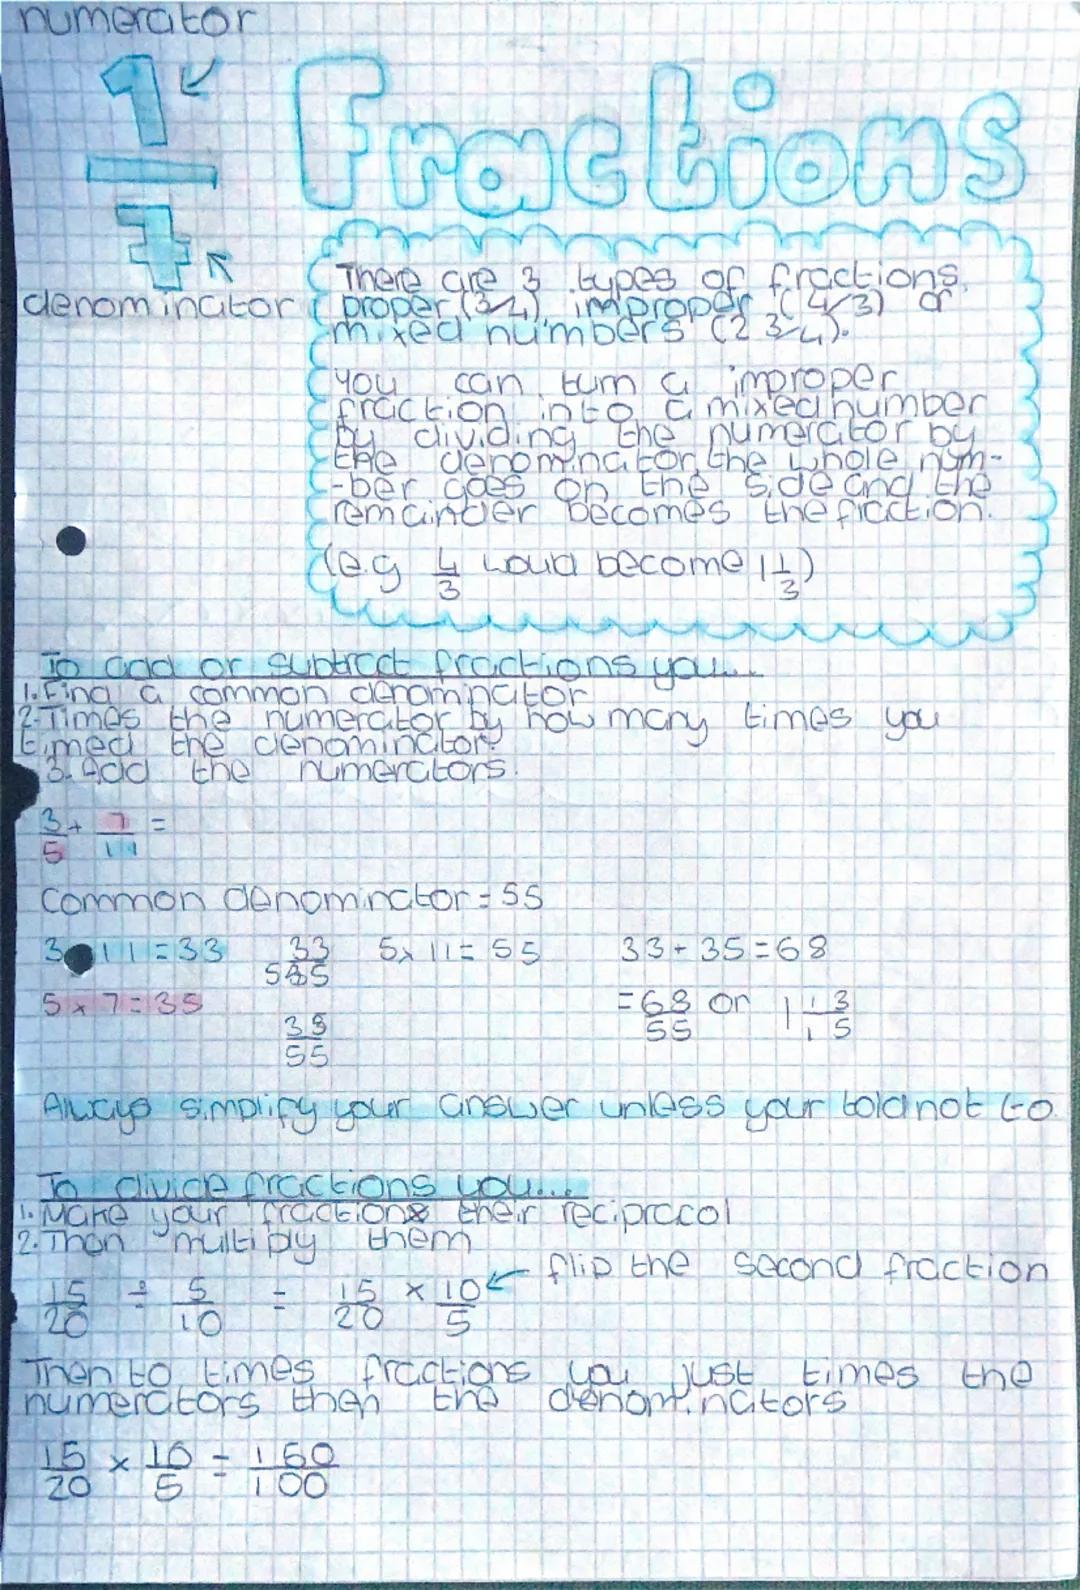 numerator
1
7
denominator
Fractions
There are 3 types of fractions,
proper (3/4), improper (4/3) or
mixed numbers (2 3/4).
you can turn a improper
fraction into a mixed number
by dividing the numerator by
the denominator, the whole num-
-ber goes on the side and the
remainder becomes the fraction.
(e.g 4/3 woud become 1 1/3)
To add or subtract fractions you...
1. Find a common denominator
2. Times the numerator by how many times you
timed the denominator.
3. Add the numerators.
3/5 + 7/11 =
Common denominator = 55
3 11 = 33 33 5 x 11 = 55 33 + 35 = 68
5 x 7 = 35 = 68/55 or 1
55
Always simplify your answer unless your told not to
To divide fractions you...
1. Make your fractions their reciprocol
2. Then multiply them
flip the second fraction
15/20 ÷ 5/10 = 15/20 × 10/5
Then to times fractions you just times the
numerators then the denominators
15/20 × 10/5 = 150/100